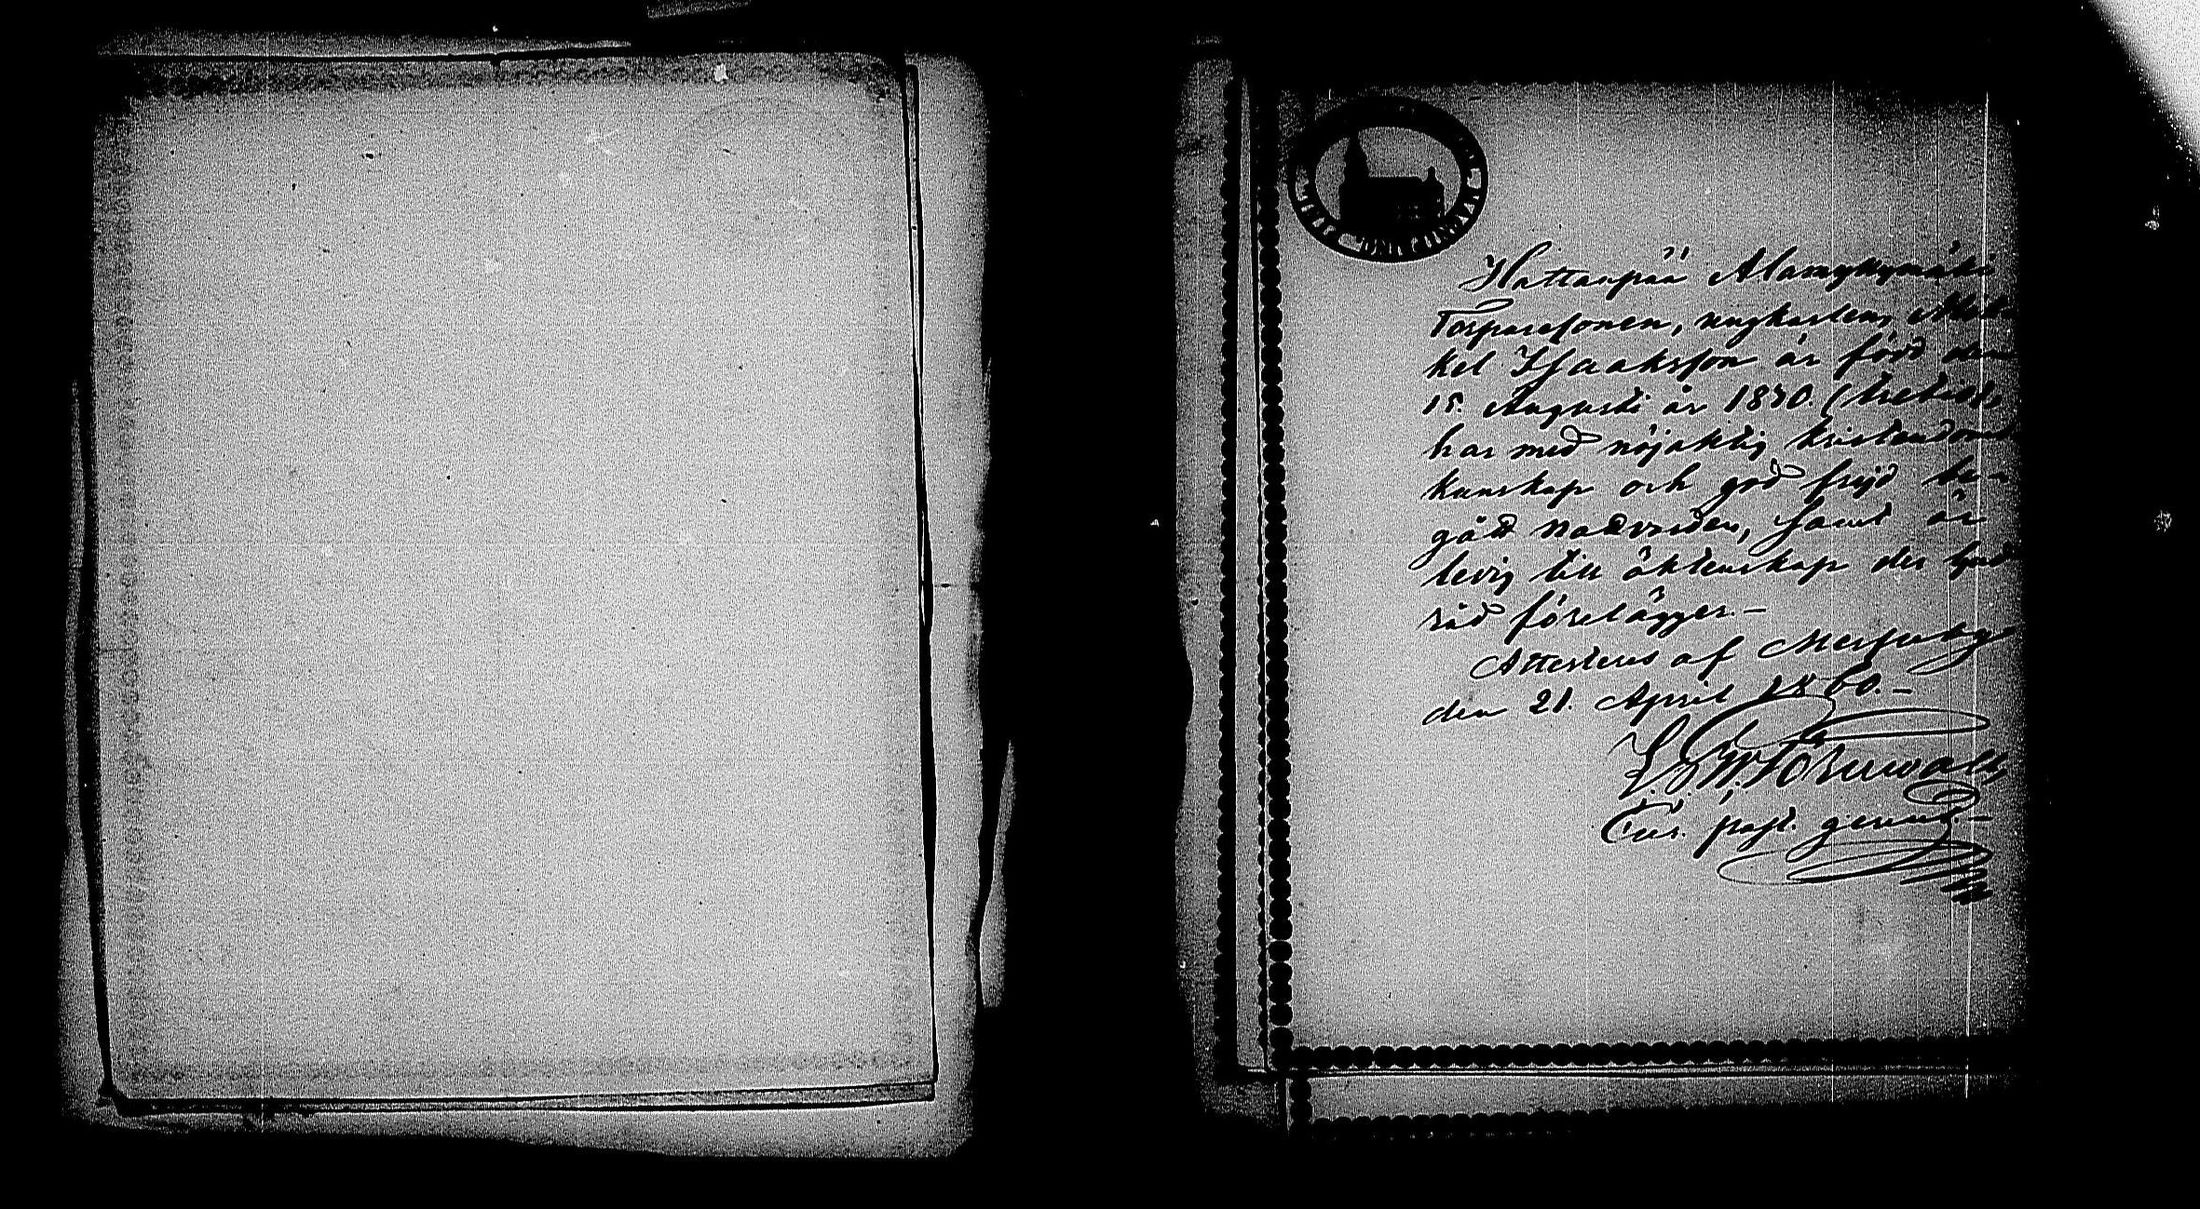 Hattanpää Alamyllymäki
Torparesonen, ungkarlen, Mik-
kel Isaaksson är född den
15. Augusti år 1830. (trettio),
har med nöjaktig kristendoms
kunskap och god frejd be-
gått nattvarden, samt är
ledig till äktenskap der lyss
råd förelägger.—
Attesteras af Messuby
den 21. April 1860.—
past.